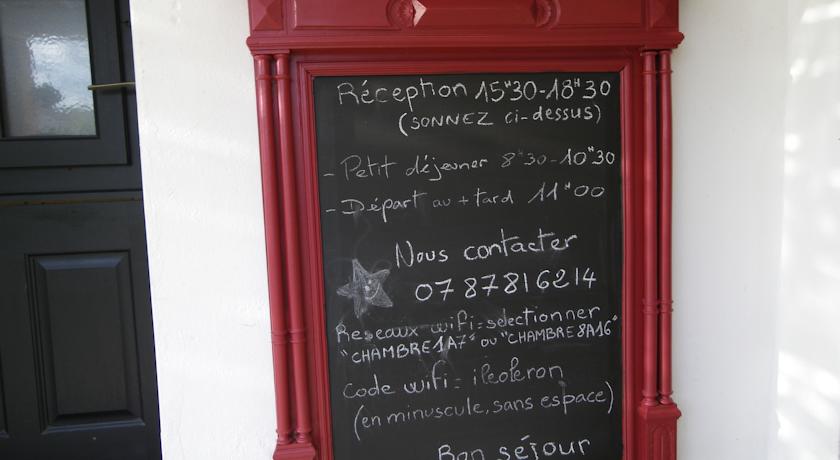 Réception 15H30-18H30
(SONNEZ ci-dessus)
- Petit déjeuner 8H30-10H30
- Départ au + tard 11H00
Nous contacter
07 87 81 62 14
Reseaux wifi = selectionner
"CHAMBRE1A7" ou "CHAMBRE 8A16"
code wifi = ileoleron
(en minuscule, sans espace)
Bon séjour